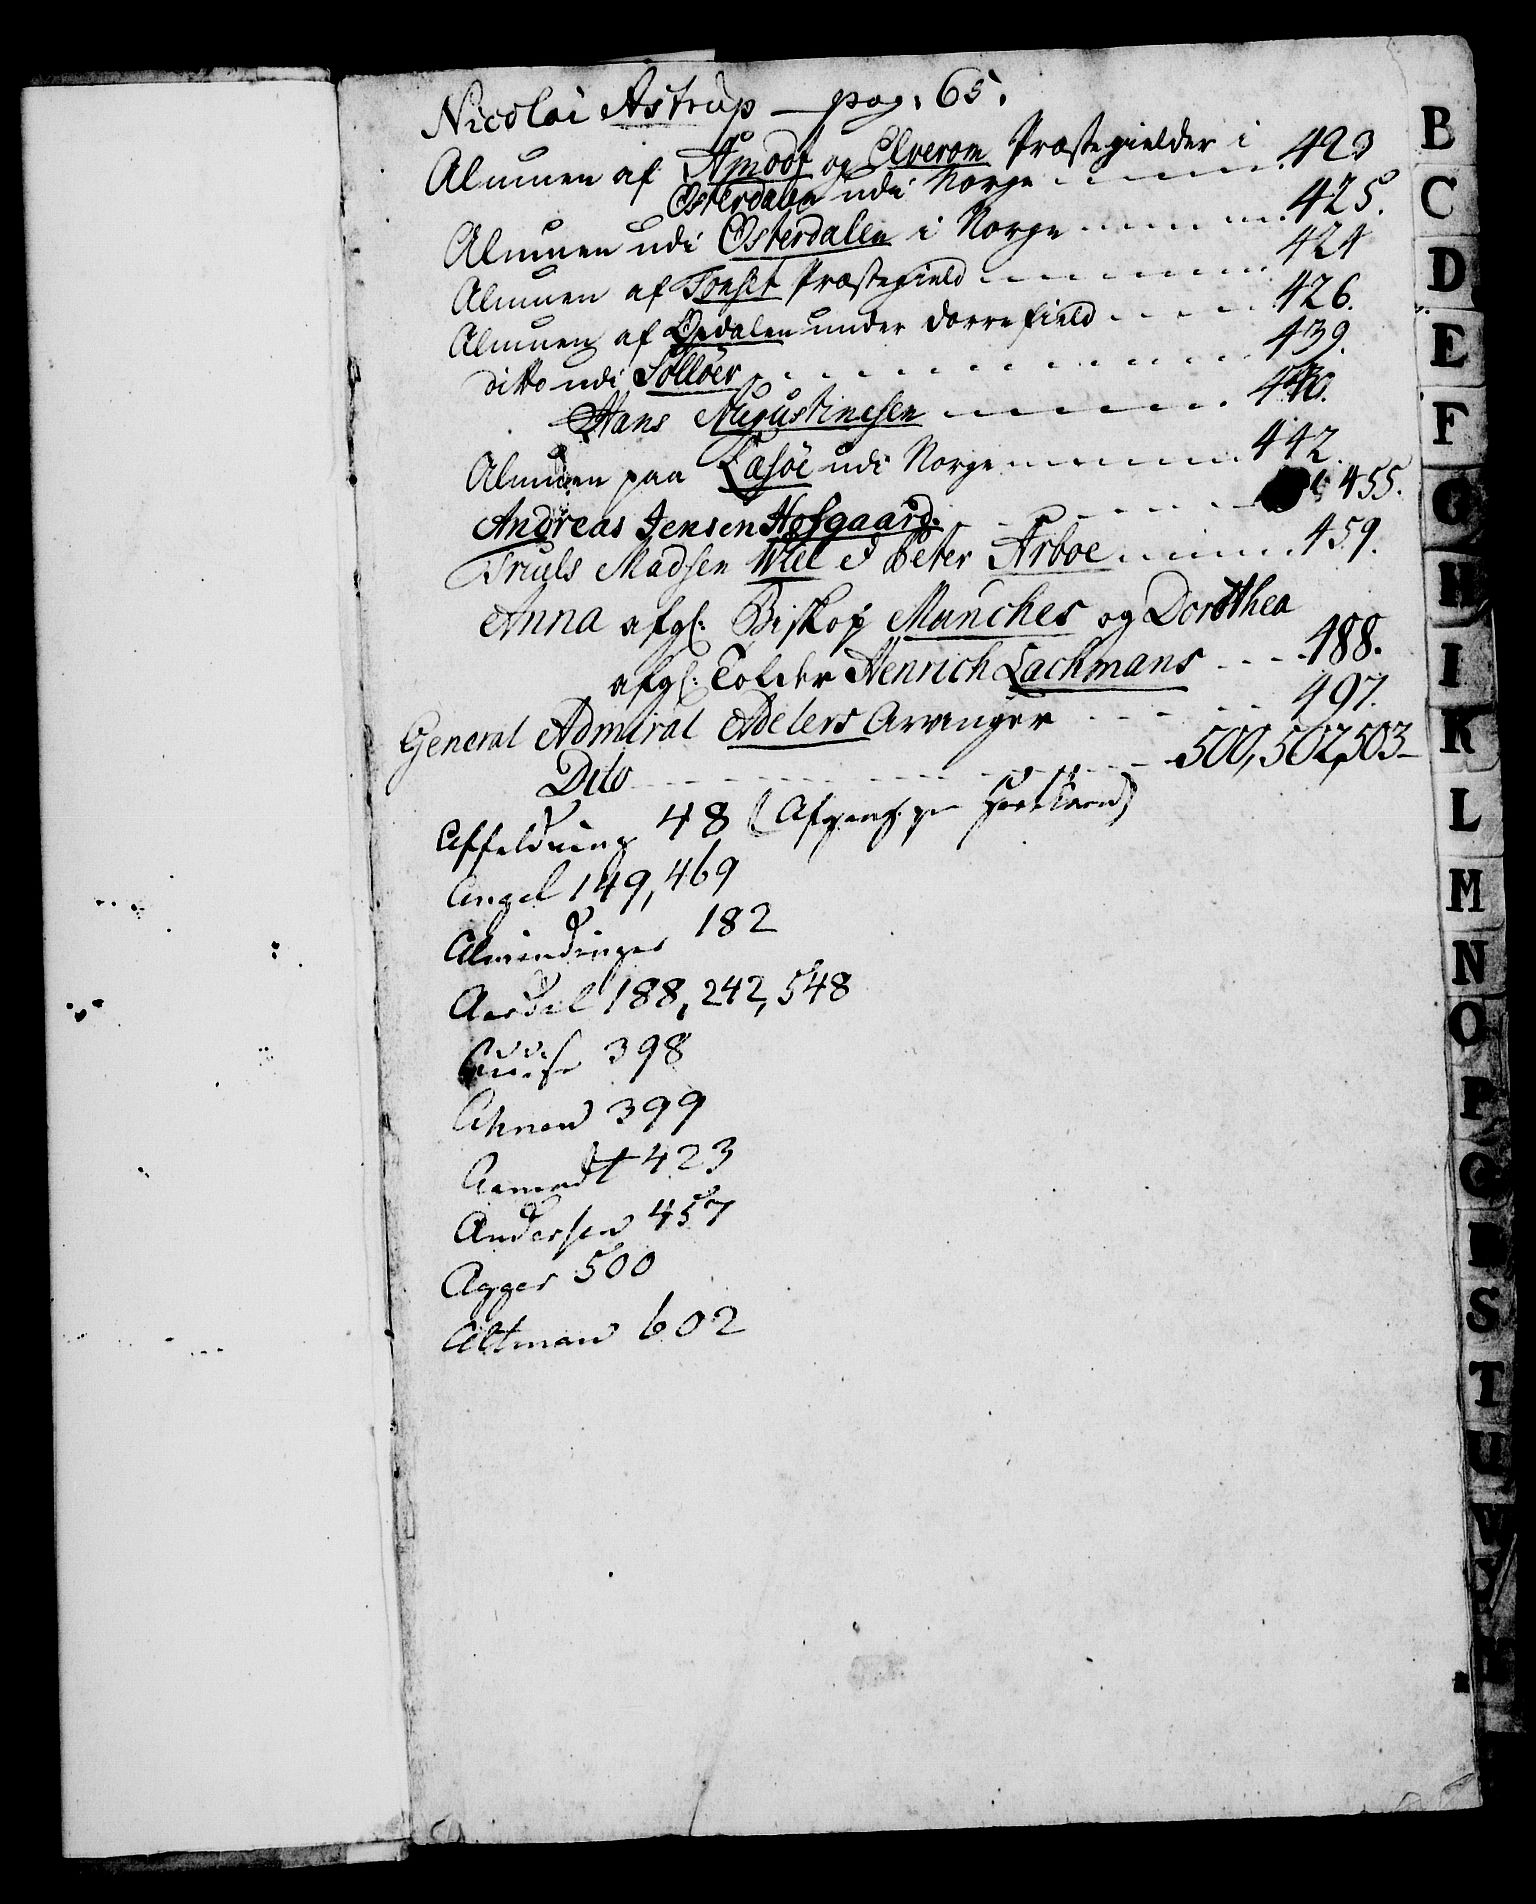 Nicolai Astrup — pag: 65.
Almuen af Åmodt og Elverom Præstegielder i
Østerdalen udi Norge 423
Almuen udi Østerdalen i Norge 425.
Almuen af Tonset Præstegield 424
Almuen af Ørdalen under Dovrefield 426.
ditto udi Solløer 439.
Hans Augustinesen 440.
Almuen paa Læsøe udi Norge 442.
Andreas Jensen Hofgaard. 455.
Truels Madsen Wiel & Peter Arboe 459.
Anna afgl: Biskop Munches og Dorothea
afgl: Tolder Henrich Lachmans 488.
General Admiral Adelers Arvinger 497.
Dito 500, 502, 503
Affældning 48
Angel 149, 469
Almindinger 182
Aasdal 188, 242, 548
398
Ahnen 399
Aamodt 423
Andersen 457
Agger 500
Altman 602
B
C
D
E
F
G
H
I
K
L
M
N
O
P
Q
R
S
T
U
W